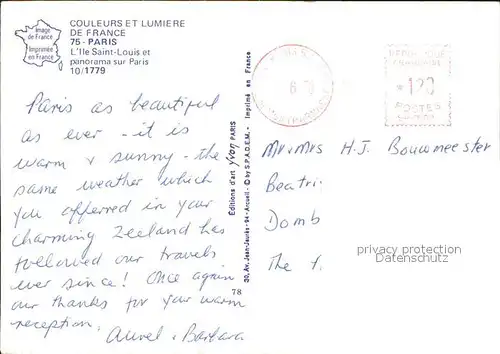 COULEURS ET LUMIERE
DE FRANCE
75 - PARIS
L'Ile Saint-Louis et
panorama sur Paris
10/1779
Image
de France
Imprimée
en France
Paris as beautiful
as ever - it is
warm & sunny - the
same weather which
you offerred in your
charming Zeeland has
followed our travels
ever since! Once again
our thanks for your warm
reception.
Aurel & Barbara
Éditions d'art yvon PARIS
30, Av. Jean-Jaurès - 94 - Arcueil - © by S.P.A.D.E.M. - Imprimé en France
78
PARIS
RÉPUBLIQUE
FRANÇAISE
120
POSTES
Mr & Mrs H.J. Bouwmeester
Beatri
Domb
The
privacy protection
Datenschutz